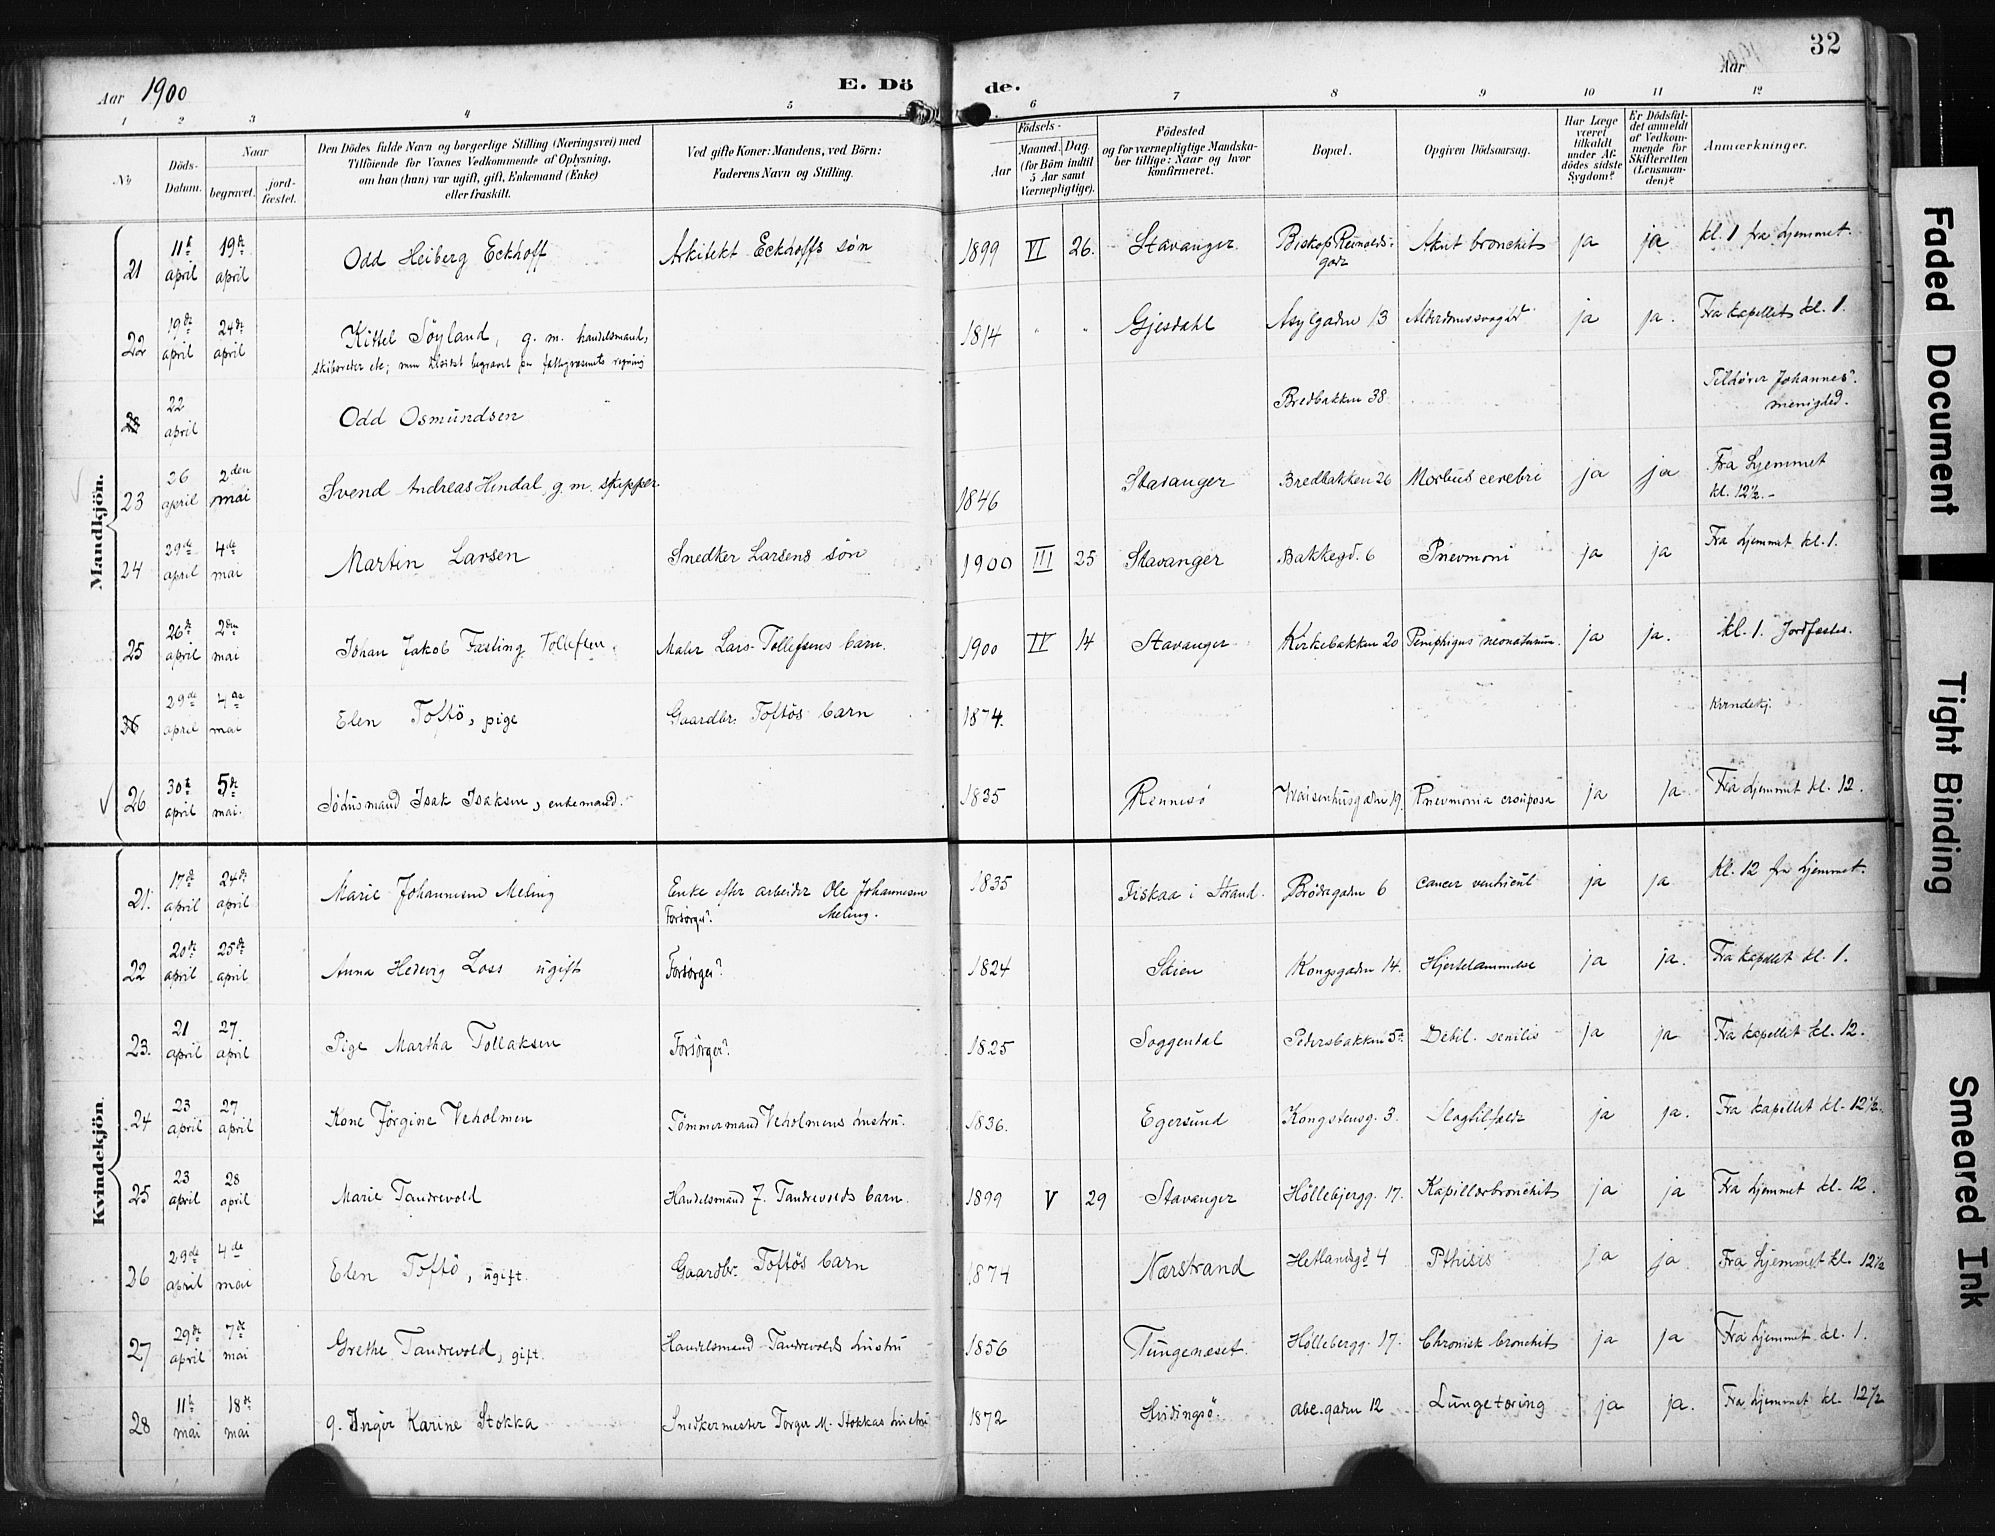 32
Aar 1900
E. Dö de.
Aar
1 2 3 4 5 6 7 8 9 10 11 12
No
Döds-Datum.
Naar
begravet.
jord-fæstet.
Den Dödes fulde Navn og borgerlige Stilling (Næringsvei) med
Tilföiende for Voxnes Vedkommende af Oplysning,
om han (hun) var ugift, gift, Enkemand (Enke)
eller fraskilt.
Ved gifte Koner: Mandens, ved Börn:
Faderens Navn og Stilling.
Födsels-
Aar
Maaned. Dag.
(for Börn indtil
5 Aar samt
Værnepligtige).
Födested
og for værnepligtige Mandska-
ber tillige: Naar og hvor
konfirmeret.
Bopæl.
Opgiven Dödsaarsag.
Har Læge
været
tilkaldt
under Af-
dödes sidste
Sygdom?
Er Dödsfal-
det anmeldt
af Vedkom-
mende for
Skifteretten
(Lensman-
den)?
Anmærkninger.
Mandkjön.
21 11te april 19de april Odd Heiberg Eckhoff Arkitekt Eckhoffs søn 1899 VI 26. Stavanger. Akut bronchit ja ja kl. 1 fra hjemmet.
22 19de april 24de april Kittel Söyland, g. m. handelsmand, 1814 " " Gjesdahl Asylgaden 13 Alderdomssvaghed ja ja. Fra kapellet kl. 1.
skibsreder etc; men blevet begravet paa fattigvæsenets regning
23 22 april Odd Osmundsen Bredbakken 38 Tilhører Johannes menighed.
23 26 april 2den mai Svend Andreas Hindal g. m. skipper. 1846 Stavanger Bredbakken 26 Morbus cerebri ja ja Fra hjemmet kl. 12½.
24 29de april 4de mai Martin Larsen Snedker Larsens søn 1900 III 25 Stavanger Bakkegd. 6 Pnevmoni ja ja Fra hjemmet kl. 1.
25 26de april 2den mai Johan Jakob Fasting Tollefsen Maler Lars Tollefsens barn. 1900 IV 14 Stavanger Kirkebakken 20 Pemphigus neonatorum. ja ja. kl. 1. Jordfæstes.
26 29de april 4de mai Elen Toftö, pige Gaardbr. Toftös barn 1874. Kvindekj.
26 30te april 5te mai. Isak Isaksen, enkemand. 1835 Rennesö Waisenhusgaden 19. Pnevmonia crouposa ja ja Fra hjemmet kl. 12.
Kvindekjön.
21. 17de april 24de april Marie Johannesen Meling Enke efter arbeider Ole Johannesen Meling. 1835 Fiskaa i Strand. Brødregaden 6 Cancer ventricul ja ja kl. 12 fra hjemmet.
Forsørger?
22 20de april 25de april Anna Hedevig Loss ugift Forsørger? 1824 Skien Kongsgaden 14. Hjertelammelse ja ja. Fra kapellet kl. 1.
23. 21 april 27 april Pige Martha Tollaksen Forsørger? 1825 Soggendal Pedersbakken Debil. senilis ja ja Fra kapellet kl. 12.
24 23 april 27 april Kone Jörgine Veholmen Tömmermand Veholmens hustru. 1836. Egersund Kongstensg. 3. Slagtilfælde ja ja. Fra kapellet kl. 12½.
25 23 april 28 april Marie Tandrevold Handelsmand J. Tandrevolds barn. 1899 V 29 Stavanger Høllebjergg. 17. Kapillærbronchit ja ja Fra hjemmet kl. 12.
26 29de april 4de mai Elen Toftö, ugift. Gaardbr. Toftös barn 1874 Nærstrand Hetlandsgd 4 Pthisis ja ja. Fra hjemmet kl. 12½
27 29de april 7de mai Grethe Tandrevold, gift. Handelsmand Tandrevolds hustru 1856 Tungenæset. Høllebergg. 17. Chronisk bronchit ja ja Fra hjemmet kl. 1.
28 11te mai 18de mai g. Inger Karine Stokka Snedkermester Torger M. Stokkas hustru 1872 Hvidingsö. abc.gaden 12 Lungetæring ja ja. Fra hjemmet kl. 12½
Faded Document
Tight Binding
Smeared Ink